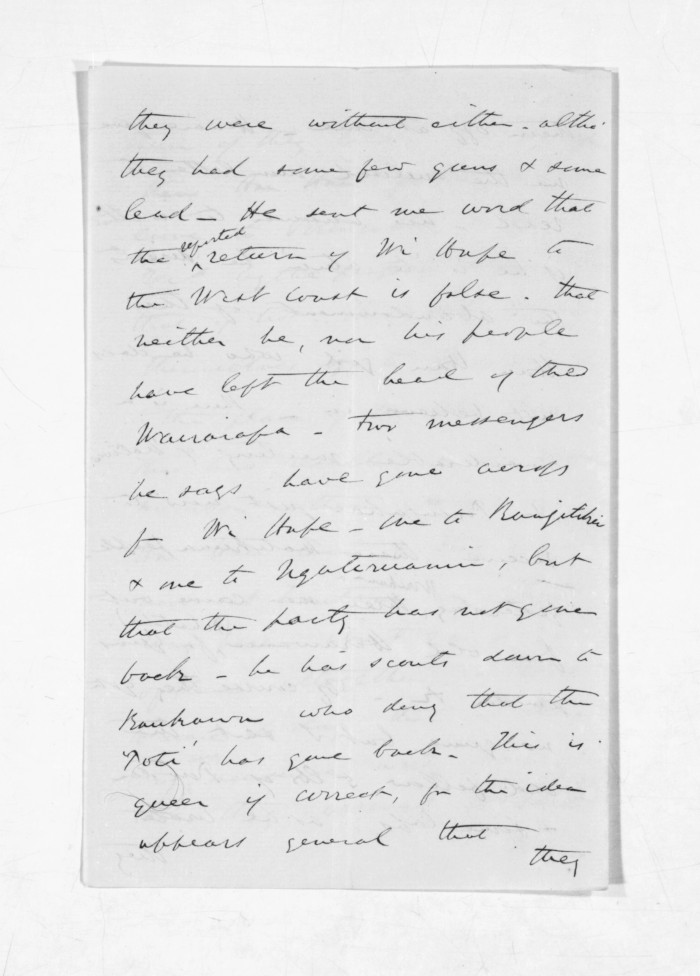 they were without either - altho'
they had some few guns & some
lead - He sent me word that
the reported return of Wi Hape to
the West Coast is false. that
neither he, nor his people
have left the head of the
Wairarapa - Two messengers
he says have gone across
f Wi Hape - one to Rangitikei
& one to Ngatiruanui, but
that the party has not gone
back - he has scouts down to
who deny that the
'Poti' has gone back - This is
queer if correct, for the idea
appears general that
they